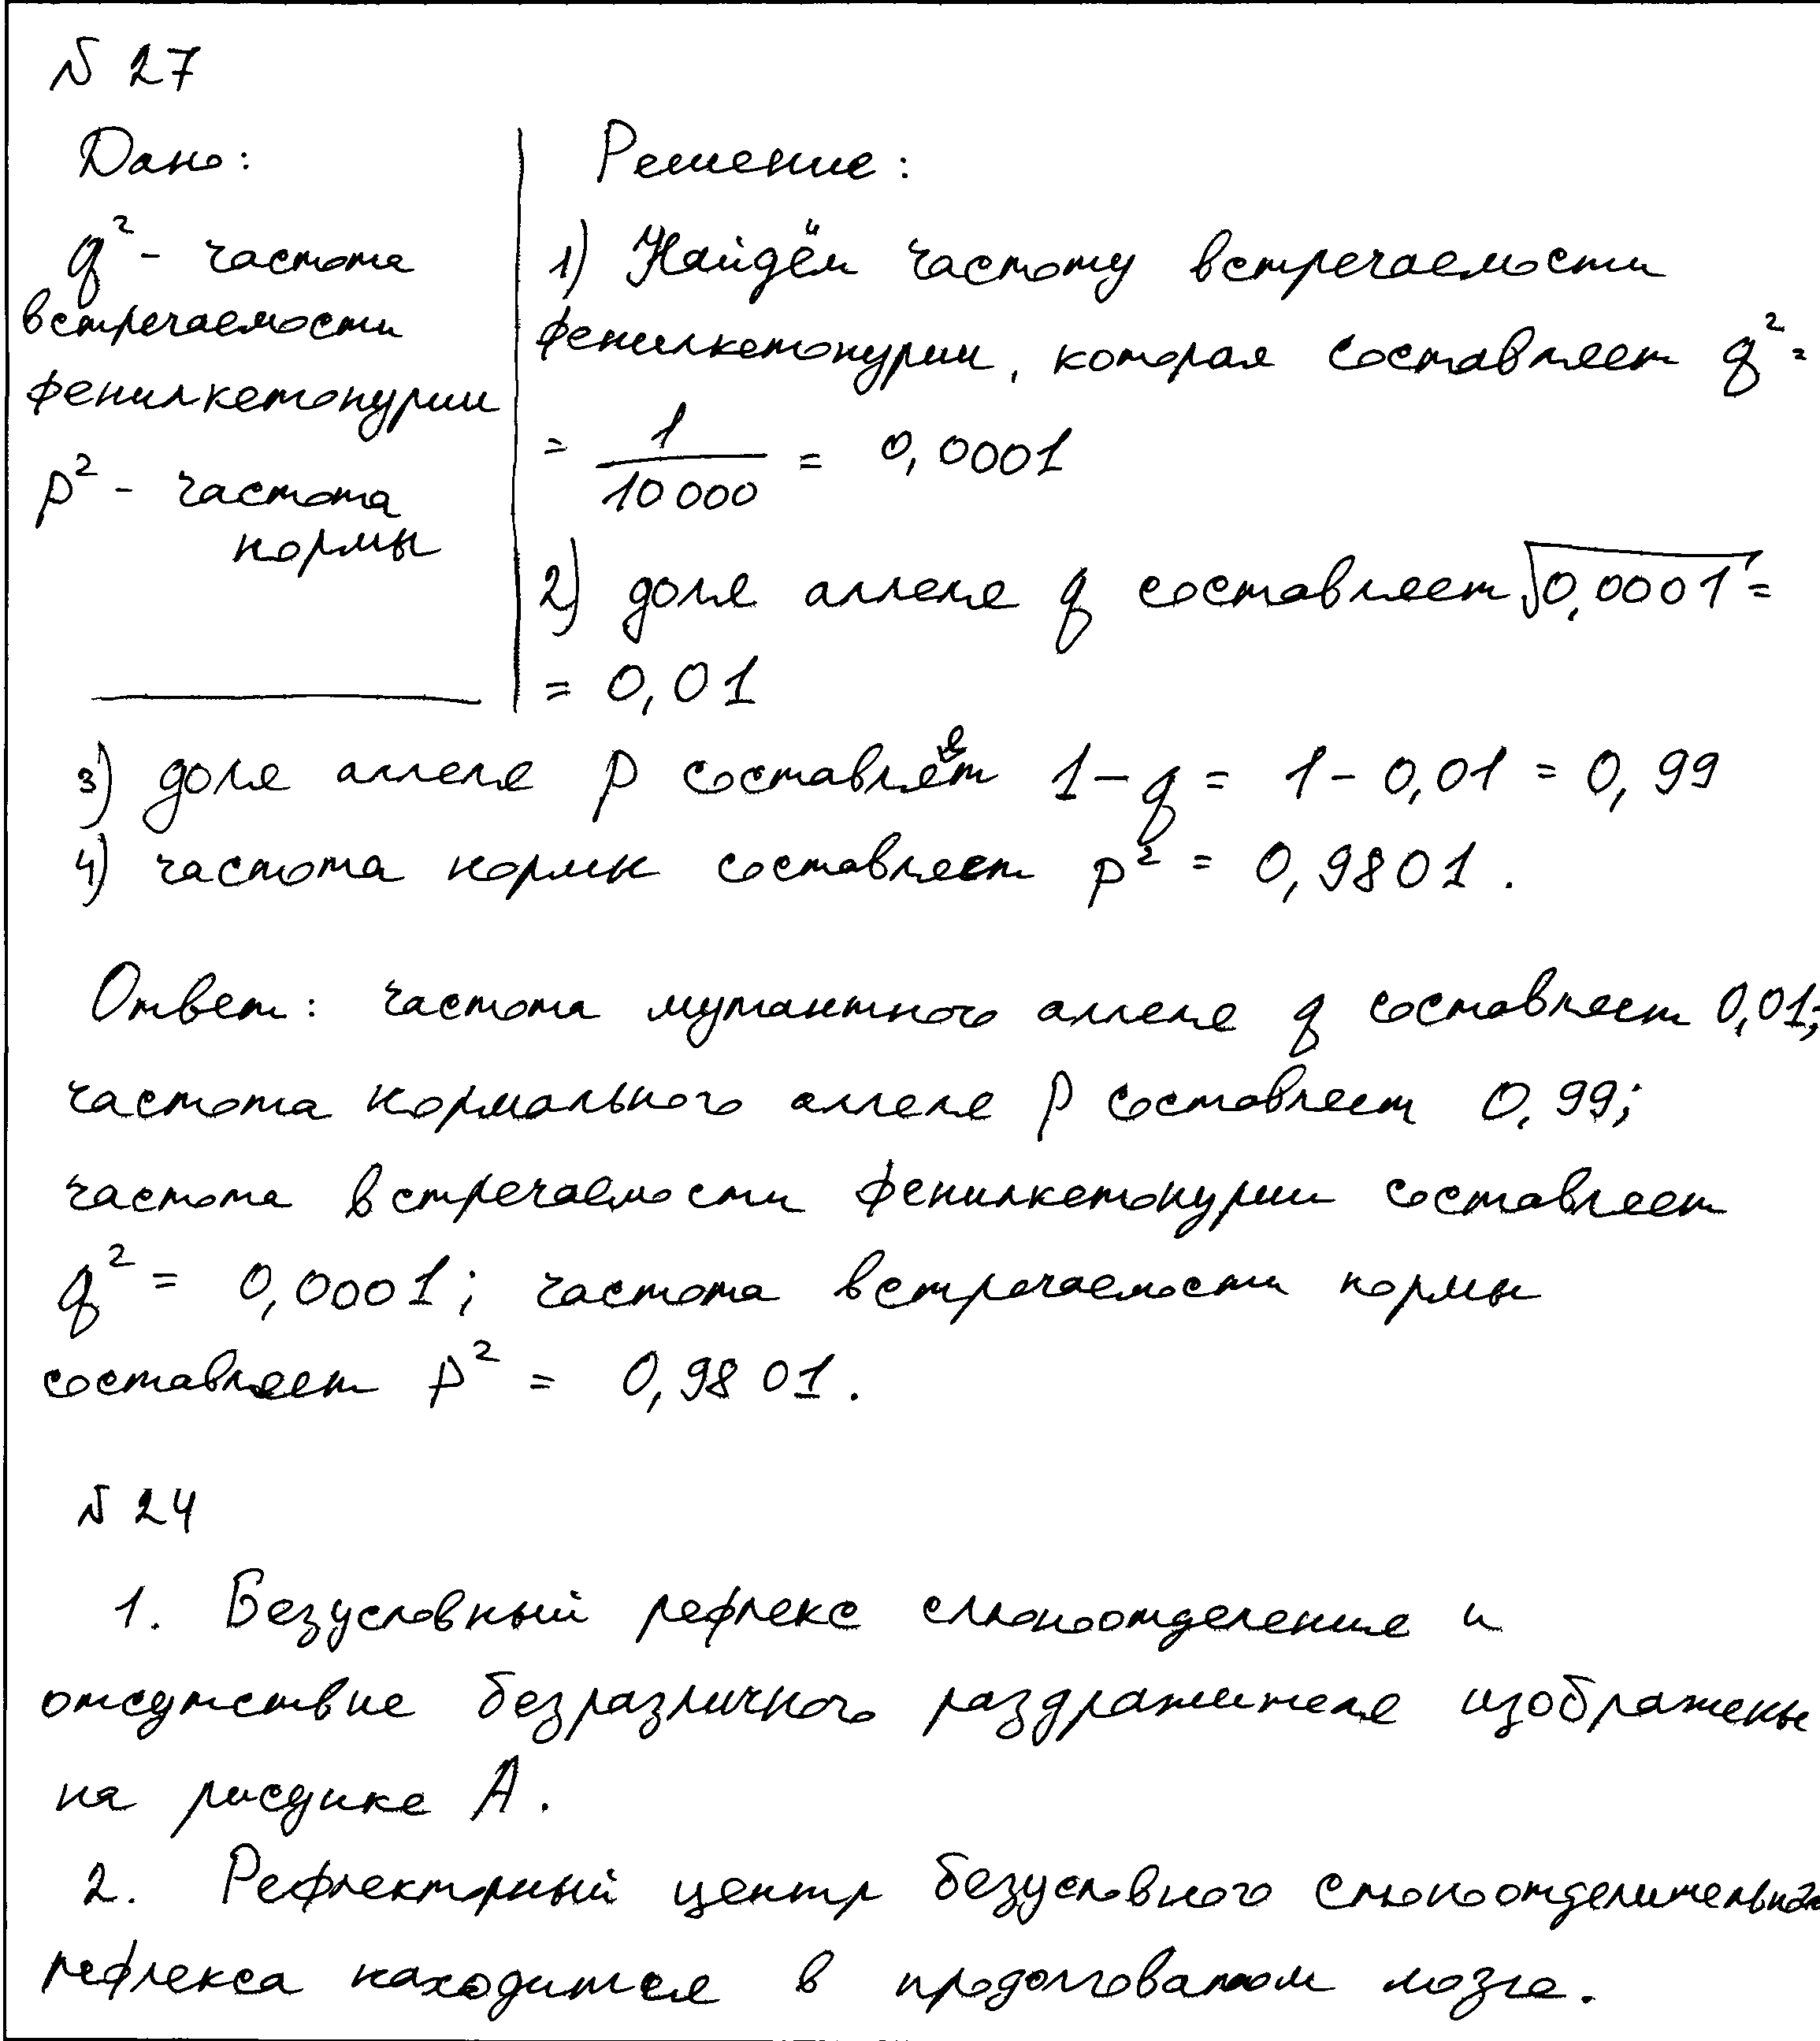 № 27
Дано:
q² - частота
встречаемости
фенилкетонурии
p² - частота
нормы
Решение:
1) Найдём частоту встречаемости
фенилкетонурии, которая составляет q² =
= 1/10 000 = 0,0001
2) доля аллеля q составляет √0,0001 =
= 0,01
3) доля аллеля p составляет 1 - q = 1 - 0,01 = 0,99
4) частота нормы составляет p² = 0,9801.
Ответ: частота мутантного аллеля q составляет 0,01;
частота нормального аллеля p составляет 0,99;
частота встречаемости фенилкетонурии составляет
q² = 0,0001; частота встречаемости нормы
составляет p² = 0,9801.
№ 24
1. Безусловный рефлекс слюноотделения и
отсутствие безразличного раздражителя изображены
на рисунке А.
2. Рефлекторный центр безусловного слюноотделительного
рефлекса находится в продолговатом мозге.